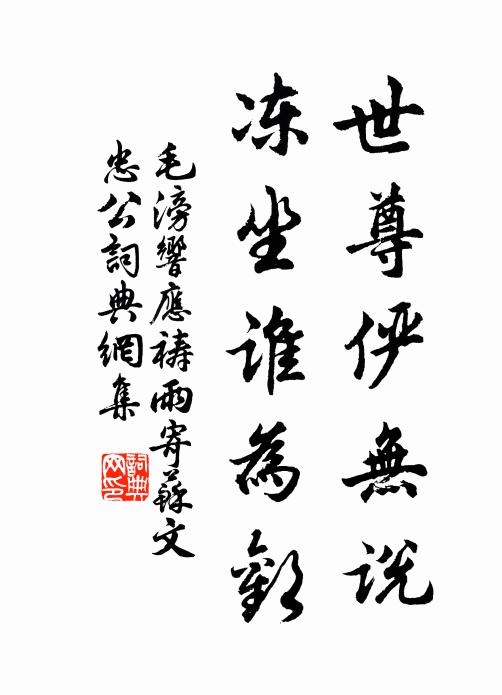 世尊俨無説
冻坐谁為
毛滂響應祷雨寄蘇文
忠公詞典網集
詞典
网印